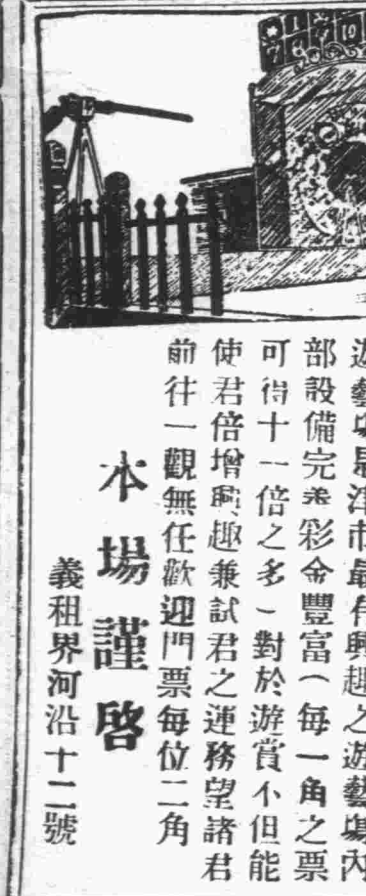 遊藝場是津市最有興趣之遊藝塲內
部設備完美彩金豐富（每一角之票
可得十一倍之多）對於遊賞不但能
使君倍增興趣兼試君之運務望諸君
前往一觀無任歡迎門票每位二角
本場謹啓
義租界河沿十二號